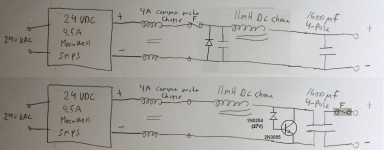 24 VDC
4.5A
Meanwell
SMPS
240 VAC
+
-
4A common mode
Choke
F
11mH DC choke
1600µf
4-Pole
+
-
24 VDC
4.5A
Meanwell
SMPS
240 VAC
+
-
4A common mode
Choke
11mH DC choke
1600µf
4-Pole
F
1N5254
(27V)
2N3055
+
-